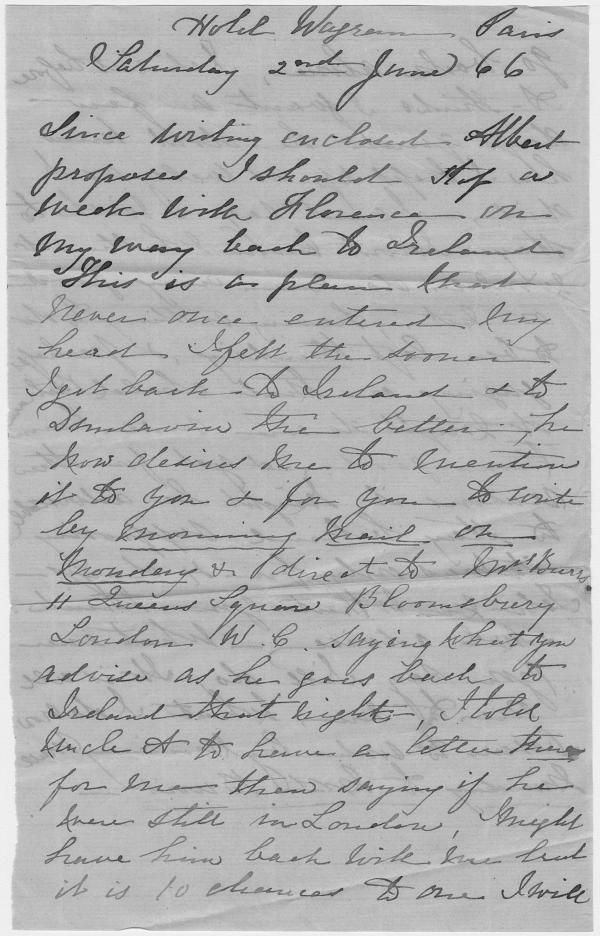 Hotel Wagram Paris
Saturday 2nd June 66
Since writing enclosed Albert
proposes I should stop a
week with Florence on
my way back to Ireland
This is a plan that
never once entered my
head I felt the sooner
I get back to Ireland & to
the better, he
now desires me to mention
it to you & for you to write
by morning mail on
Monday & direct to Mrs Burrs
11 Queens Square Bloomsbury
London W.C. saying what you
advise as he goes back to
Ireland that night, I told
Uncle A to have a letter there
for me then saying if he
were still in London, I might
have him back with me but
it is 10 chances to one I will